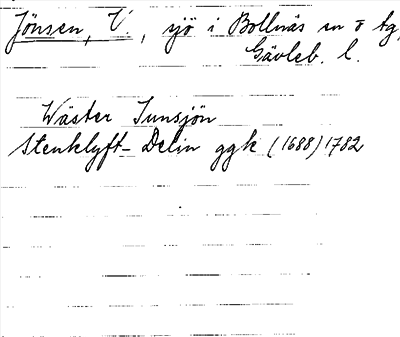 Jönsen, V., sjö i Bollnäs sn o tg,
Gävleb. l.
Wäster Iunsjön
Stenklyft-Delin ggk (1688) 1782